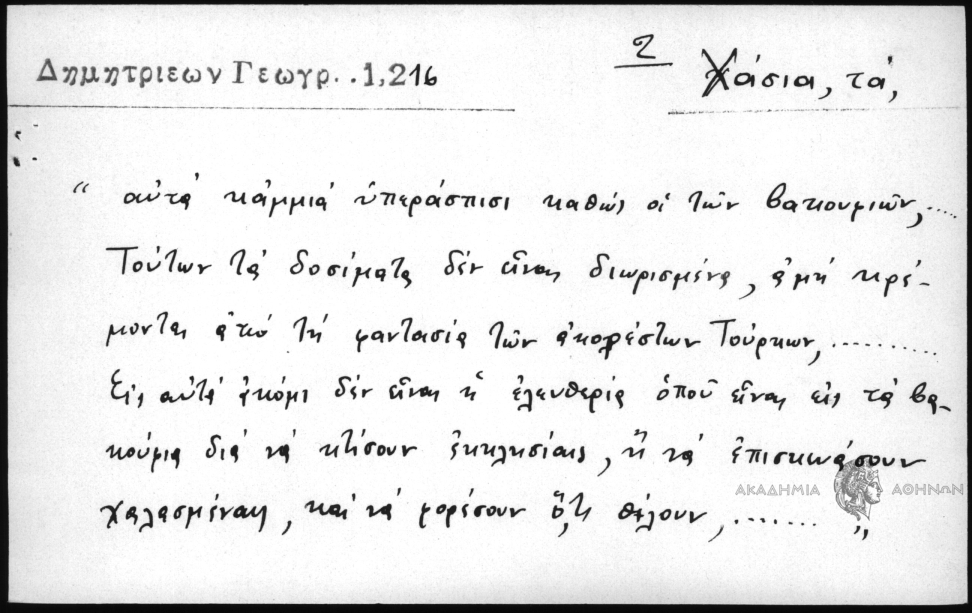 Δημητριεων Γεωγρ. . 1,216
2
χάσια, τά,
“ αὐτά καμμιά ὑπεράσπισι καθώς οἱ τῶν βακουμιῶν, .....
Τούτων τά δοσίματα δέν εἶναι διωρισμένα, ἀμή κρέ-
μονται ἀπό τή φαντασία τῶν ἀκορέστων Τούρκων, ..........
Εἰς αὐτά ἀκόμι δέν εἶναι ἡ ἐλευθερία ὁποῦ εἶναι εἰς τά βα-
κούμια διά νά κτίσουν ἐκκλησίαις, ἤ νά ἐπισκιάσουν
χαλασμέναις, καί νά φορέσουν ὅ,τι θέλουν, ....... „
ΑΚΑΔΗΜΙΑ ΑΘΗΝΩΝ